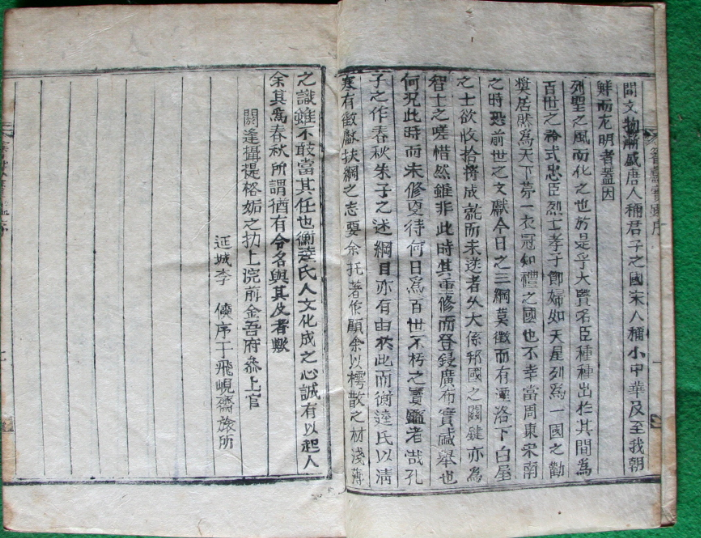 間文物漸盛唐人稱君子之國宋人稱小中華及至我朝
鮮而尤明者蓋因
列聖之風而化之也於是乎大賢名臣種種出於其間為
百世之矜式忠臣烈士孝子節婦如天星列為一國之勸
獎居然為天下第一衣冠知禮之國也不幸當周東宋南
之時恐前世之文獻今日之三綱莫徵而有潼洛下白屋
之士欲收拾撰成說而未遂者矣大係邦國之關鍵亦為
智士之嗟惜然雖非此時其重修而登錄廣布實誠舉也
何況此時而未修更待何日為百世不朽之寶鑑者哉孔
子之作春秋朱子之述綱目亦有由於此而衛達氏以淸
寒有徵獻扶綱之志要余托著作顧余以樗散之材淺薄
之識雖不敢當其任也衛達氏人文化成之心誠有以起人
余其為春秋所謂猶有令名與其及者歟
閼逢攝提格姤之扐上浣前金吾府叅上官
延城李 候序于飛峴齋旅所